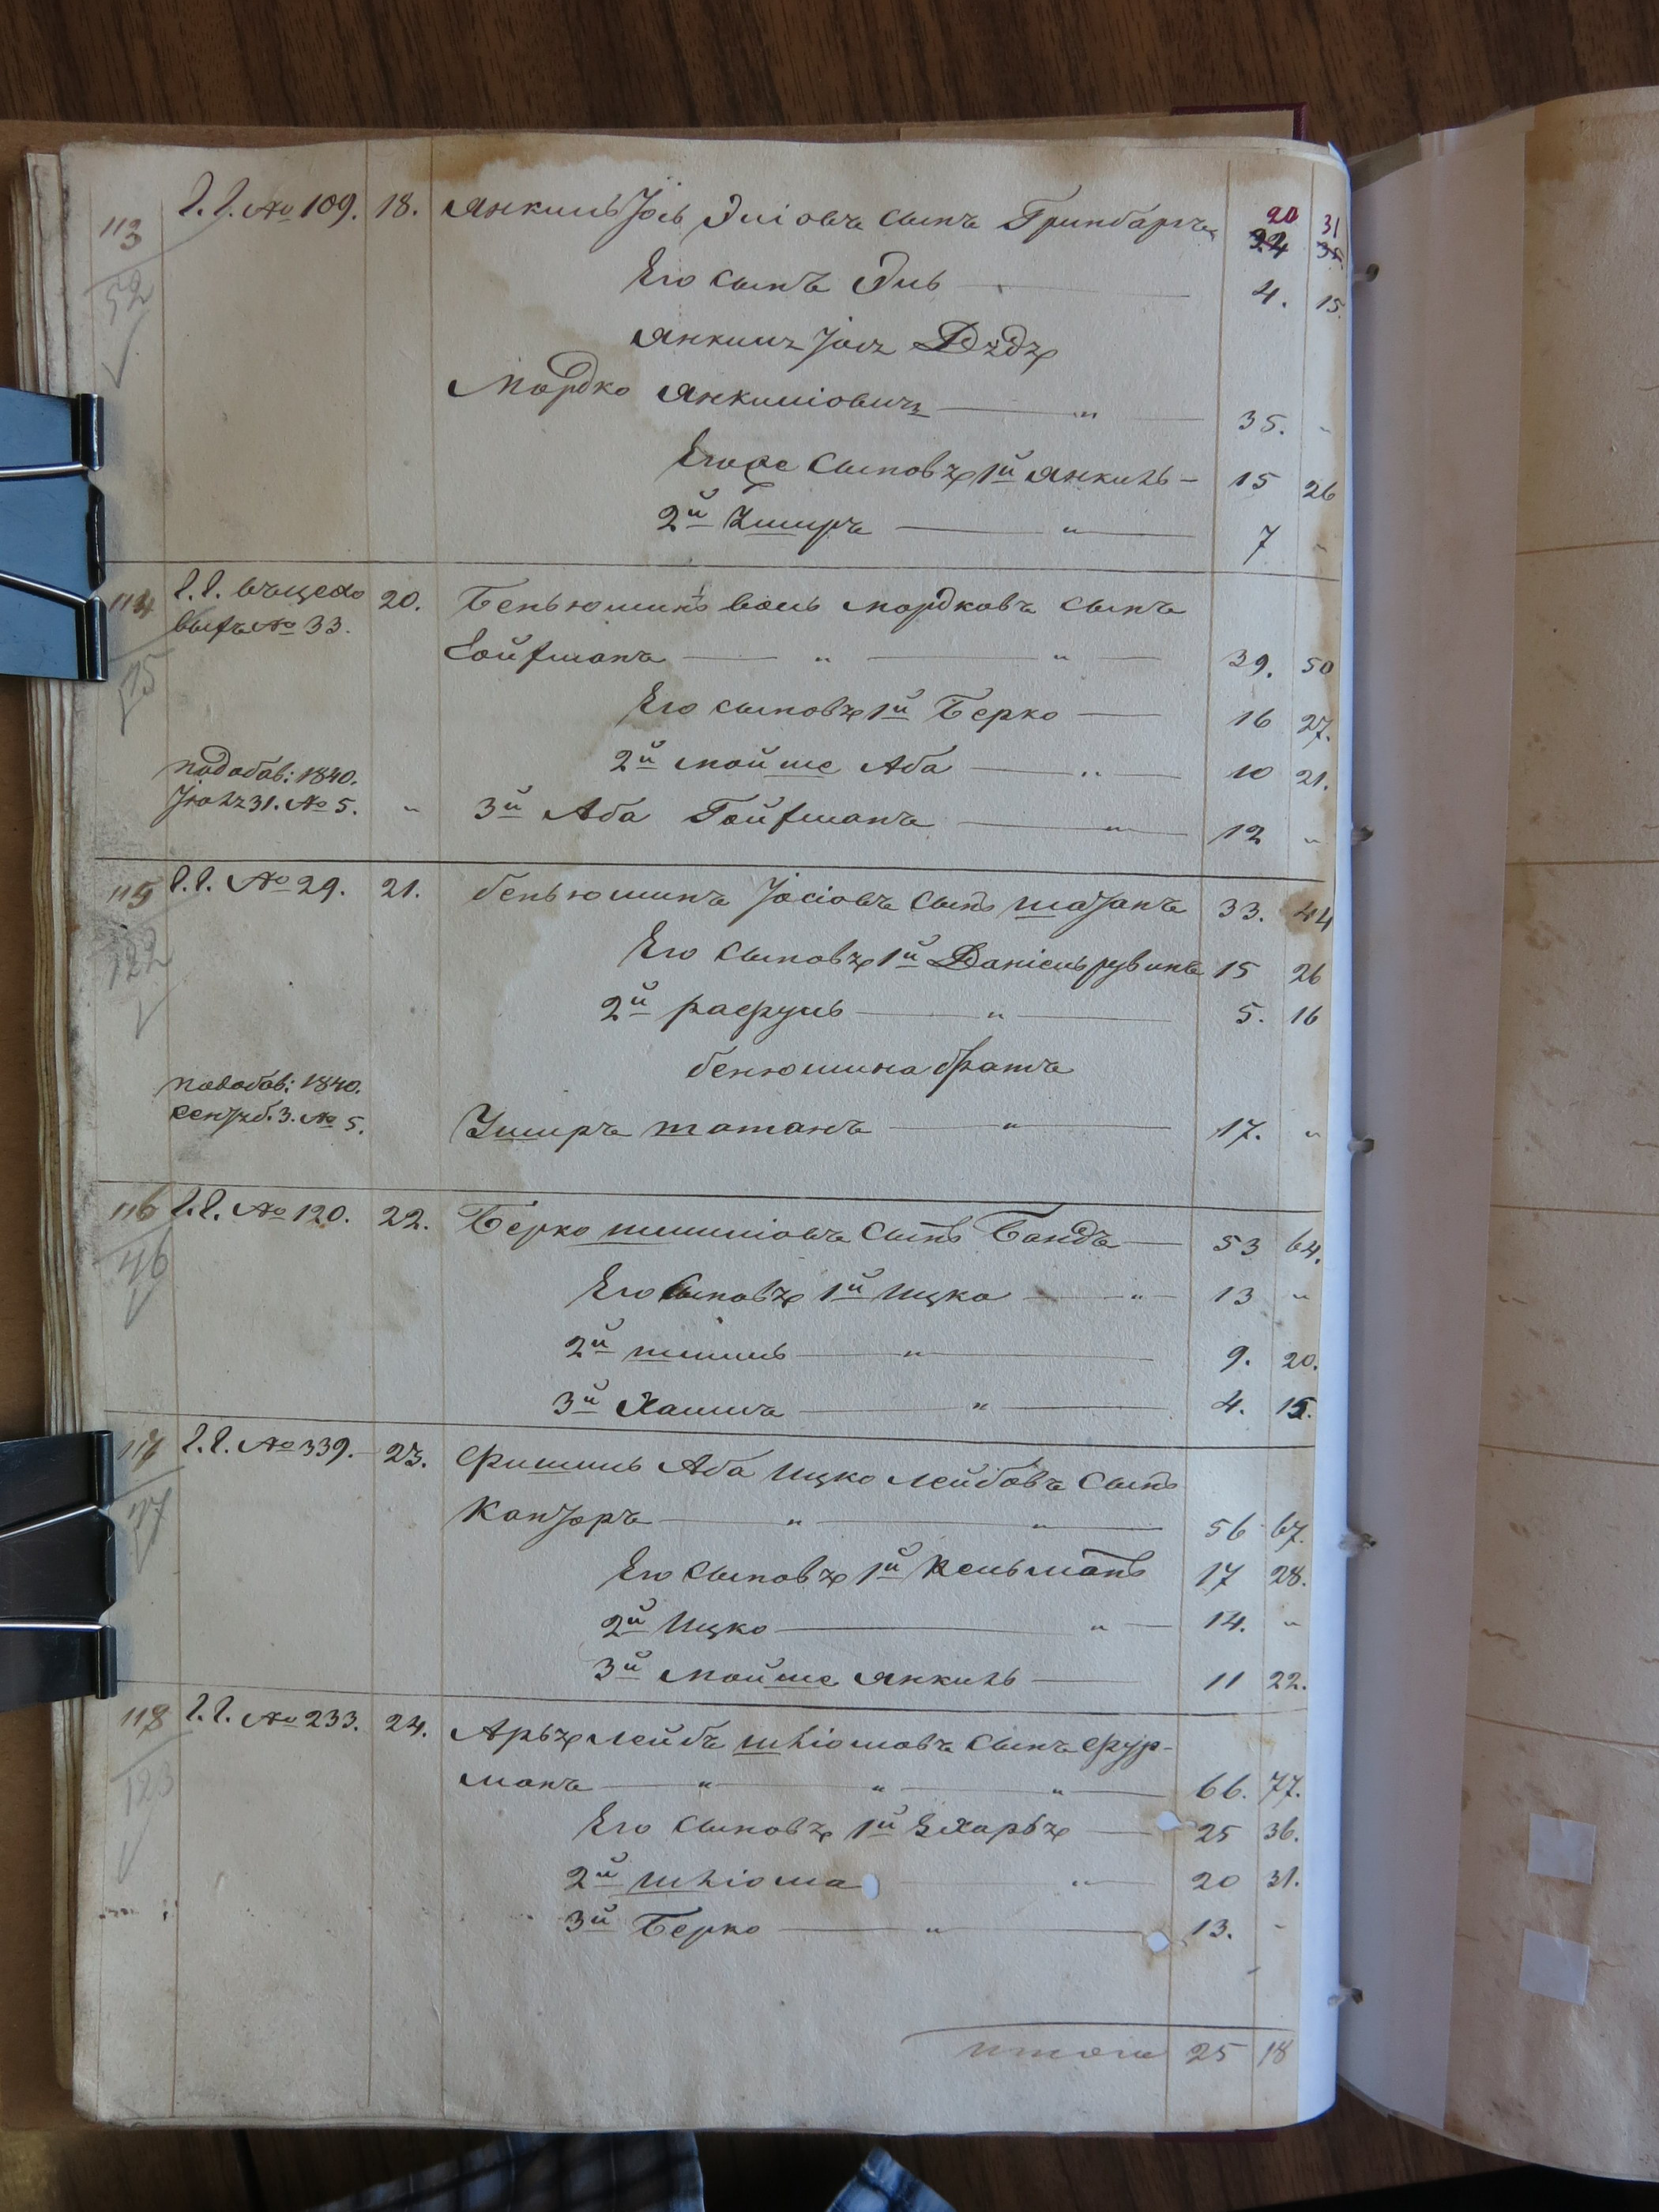 113 № 109. 18. Янкиль Іось Эліовъ сынъ Гринбаргъ 20 31
24 35
52 Его сынъ Эль 4. 15.
Янкиль Іось Дѣдѣ
Мордко Янкиліовичъ — „ — 35. „
Егоже сыновѣ 1й Янкиль — 15 26
2й Ушыръ — „ — 7 „
114 20. Беньюминъ Волъ Мордковъ сынъ
№ 33.
75 Гойфманъ — „ — „ — 39. 50
Его сыновѣ 1й Берко — 16 27.
2й Мойше Аба — „ — 10 21.
подобав: 1840.
Іюль 31. № 5. „ 3й Аба Гойфманъ — „ — 12 „
115 № 29. 21. Беньюминъ Іосіовъ сынъ 33. 44
122 Его сыновѣ 1й Даніель Рувинъ 15 26
2й Рафуль — „ — 5. 16
Бенюмина братъ
подобав: 1840.
сентяб. 3. № 5. Ушыръ — „ — 17. „
116 № 120. 22. Берко Шмиліовъ сынъ Бандъ — 53 64.
46 Его сыновѣ 1й Ицко — „ — 13 „
2й Шмиль — „ — 9. 20.
3й Хаимъ — „ — 4. 15.
117 № 339. 23. Фишиль Аба Ицко Лейбовъ сынъ
Канторъ — „ — „ — 56 67.
Его сыновѣ 1й Кельманъ 17 28.
2й Ицко — „ — 14. „
3й Мойше Янкиль — 11 22.
118 № 233. 24. Арьѣ Лейбъ Шліомовъ сынъ Фур-
123 манъ — „ — „ — „ — 66. 77.
Его сыновѣ 1й Зхарьѣ — 25 36.
2й Шліома — „ — 20 31.
3й Берко — „ — 13. -
итого 25 18